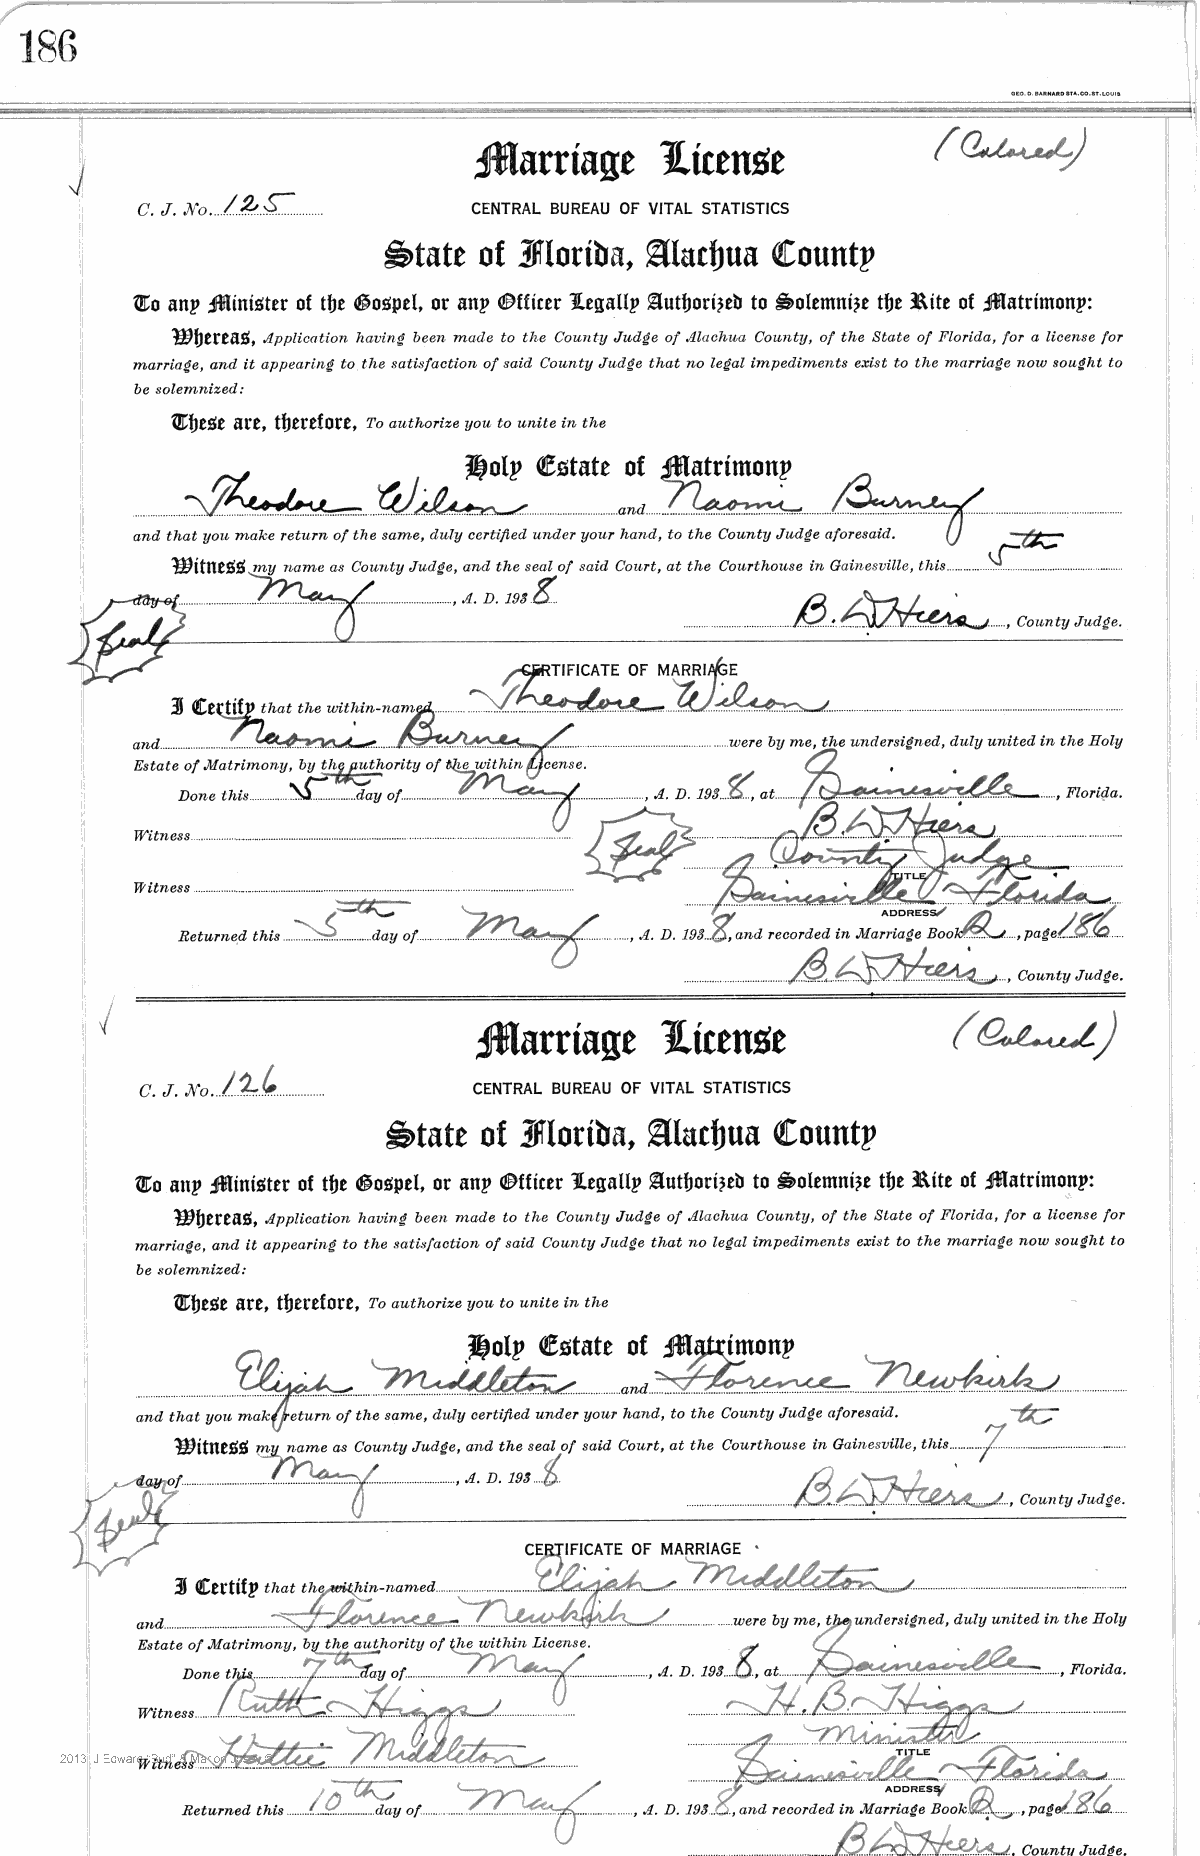 186
GEO. D. BARNARD STA. CO. ST. LOUIS
Marriage License (Colored)
C. J. No. 125 CENTRAL BUREAU OF VITAL STATISTICS
State of Florida, Alachua County
To any Minister of the Gospel, or any Officer Legally Authorized to Solemnize the Rite of Matrimony:
Whereas, Application having been made to the County Judge of Alachua County, of the State of Florida, for a license for
marriage, and it appearing to the satisfaction of said County Judge that no legal impediments exist to the marriage now sought to
be solemnized:
These are, therefore, To authorize you to unite in the
Holy Estate of Matrimony
Theodore Wilson and Naomi Burney
and that you make return of the same, duly certified under your hand, to the County Judge aforesaid.
Witness my name as County Judge, and the seal of said Court, at the Courthouse in Gainesville, this 5th
day of May, A. D. 1938
Seal B. D. Hiers, County Judge.
CERTIFICATE OF MARRIAGE
I Certify that the within-named Theodore Wilson
and Naomi Burney were by me, the undersigned, duly united in the Holy
Estate of Matrimony, by the authority of the within License.
Done this 5th day of May, A. D. 1938, at Gainesville, Florida.
Witness Seal B. D. Hiers
County Judge
TITLE
Witness Gainesville Florida
ADDRESS
Returned this 5th day of May, A. D. 1938, and recorded in Marriage Book, page 186
B D Hiers, County Judge.
Marriage License (Colored)
C. J. No. 126 CENTRAL BUREAU OF VITAL STATISTICS
State of Florida, Alachua County
To any Minister of the Gospel, or any Officer Legally Authorized to Solemnize the Rite of Matrimony:
Whereas, Application having been made to the County Judge of Alachua County, of the State of Florida, for a license for
marriage, and it appearing to the satisfaction of said County Judge that no legal impediments exist to the marriage now sought to
be solemnized:
These are, therefore, To authorize you to unite in the
Holy Estate of Matrimony
Elijah Middleton and Florence Newkirk
and that you make return of the same, duly certified under your hand, to the County Judge aforesaid.
Witness my name as County Judge, and the seal of said Court, at the Courthouse in Gainesville, this 7th
day of May, A. D. 1938
Seal B. D. Hiers, County Judge.
CERTIFICATE OF MARRIAGE
I Certify that the within-named Elijah Middleton
and Florence Newkirk were by me, the undersigned, duly united in the Holy
Estate of Matrimony, by the authority of the within License.
Done this 7th day of May, A. D. 1938, at Gainesville, Florida.
Witness Ruth Higgs H. B. Higgs
Minister
TITLE
Witness Hattie Middleton Gainesville Florida
2013 J Edward "Bud"
ADDRESS
Returned this 10th day of May, A. D. 1938, and recorded in Marriage Book, page 186
B D Hiers, County Judge.